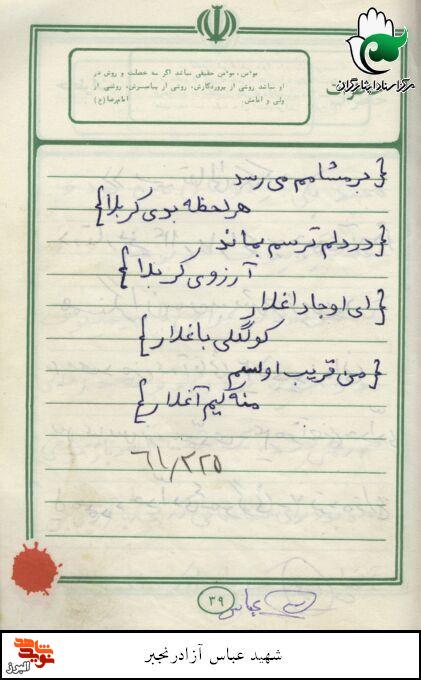 مرکز اسناد ایثارگران
مؤمن، مؤمن حقیقی نباشد اگر سه خصلت و روش در
او نباشد روشی از پروردگارش، روشی از پیامبرش، روشی از
ولی و امامش. امام رضا (ع)
{بر مشامم می رسد
هر لحظه بوی کربلا}
{در دلم ترسم بماند
آرزوی کربلا}
{ای اوجاد اغلار
کولگلی باغلار}
{من قریب اولسم
منه کیم آغلار}
۶۱/۲۲۵
۳۹
عباس
شاهد
نوید
البرز
شهید عباس آزادرنجبر